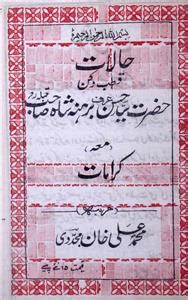 بسم اللہ الرحمن الرحیم
حالات
قطب دکن
حضرت سید حسن برہنہ شاہ صاحب
معہ
کرامات
محمد علی خان مجددی
قیمت